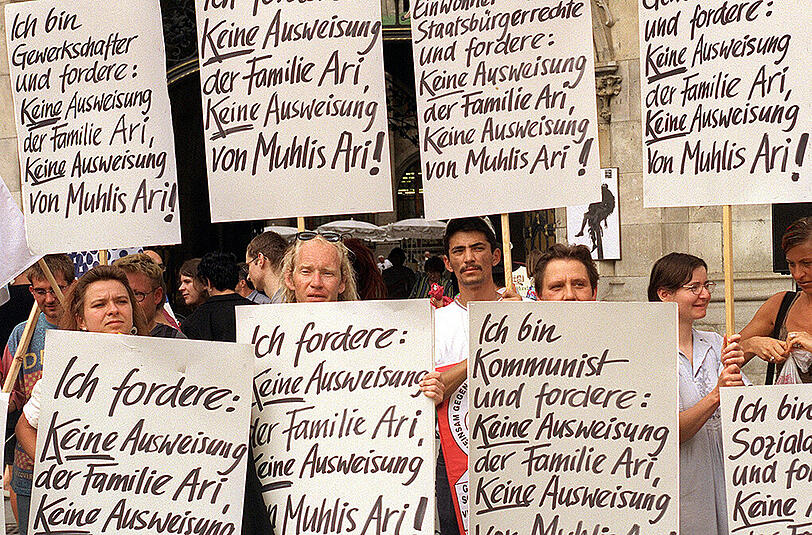 Ich bin
Gewerkschafter
und fordere:
Keine Ausweisung
der Familie Ari,
Keine Ausweisung
von Muhlis Ari!
Ich fordere:
Keine Ausweisung
der Familie Ari,
Keine Ausweisung
von Muhlis Ari!
Einwohner
Staatsbürgerrechte
und fordere:
Keine Ausweisung
der Familie Ari,
Keine Ausweisung
von Muhlis Ari!
und fordere:
Keine Ausweisung
der Familie Ari,
Keine Ausweisung
von Muhlis Ari!
Ich fordere:
Keine Ausweisung
der Familie Ari,
Keine Ausweisung
Ich fordere:
Keine Ausweisung
der Familie Ari,
Keine Ausweisung
von Muhlis Ari!
Ich bin
Kommunist
und fordere:
Keine Ausweisung
der Familie Ari,
Keine Ausweisung
von Muhlis Ari!
Ich bin
Soziald
und fo
Keine
der Fam
Keine
GEGEN